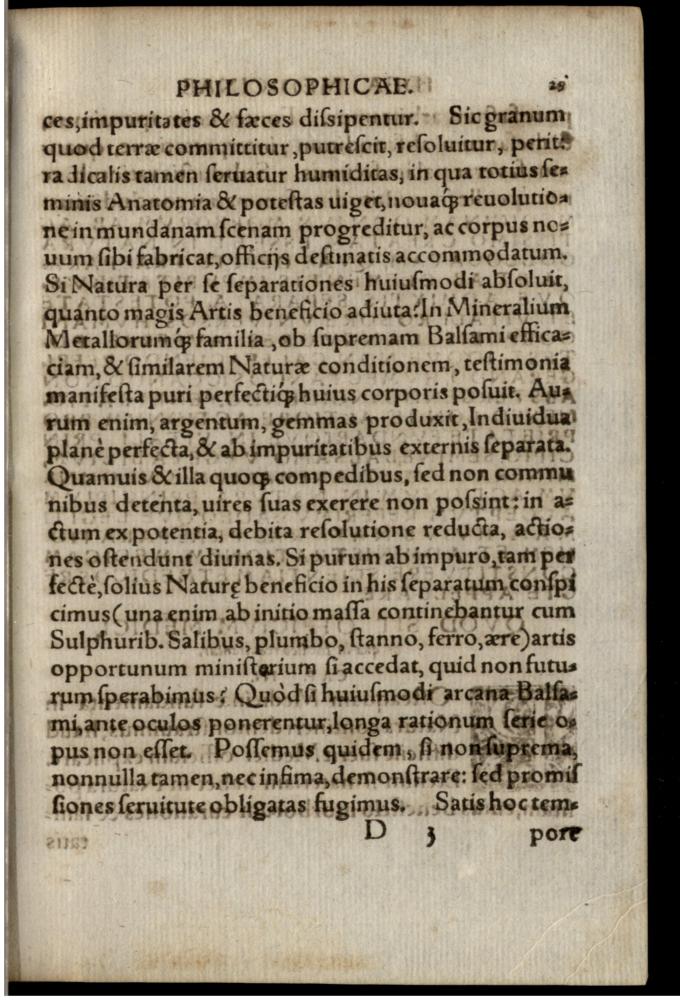 PHILOSOPHICAE. 29
ces, impuritates & fæces dissipentur. Sic granum
quod terræ committitur, putrescit, resoluitur, perit:
radicalis tamen seruatur humiditas, in qua totius se-
minis Anatomia & potestas uiget, nouaqꝫ reuolutio-
ne in mundanam scenam progreditur, ac corpus no-
uum sibi fabricat, officijs destinatis accommodatum.
Si Natura per se separationes huiusmodi absoluit,
quánto magis Artis beneficio adiuta? In Mineralium
Metallorumqꝫ familia, ob supremam Balsami effica-
ciam, & similarem Naturæ conditionem, testimonia
manifesta puri perfectiqꝫ huius corporis posuit. Au-
rum enim, argentum, gemmas produxit, Indiuidua
planè perfecta, & ab impuritatibus externis separata.
Quamuis & illa quoqꝫ compedibus, sed non commu
nibus detenta, uires suas exerere non possint: in a-
ctum ex potentia, debita resolutione reducta, actio-
nes ostendunt diuinas. Si purum ab impuro, tam per
fectè, solius Naturę beneficio in his separatum conspi
cimus (una enim ab initio massa continebantur cum
Sulphurib. Salibus, plumbo, stanno, ferro, ære) artis
opportunum ministerium si accedat, quid non futu-
rum sperabimus? Quòd si huiusmodi arcana Balsa-
mi, ante oculos ponerentur, longa rationum serie o-
pus non esset. Possemus quidem, si non suprema,
nonnulla tamen, nec infima, demonstrare: sed promis
siones seruitute obligatas fugimus. Satis hoc tem-
D 3 pore